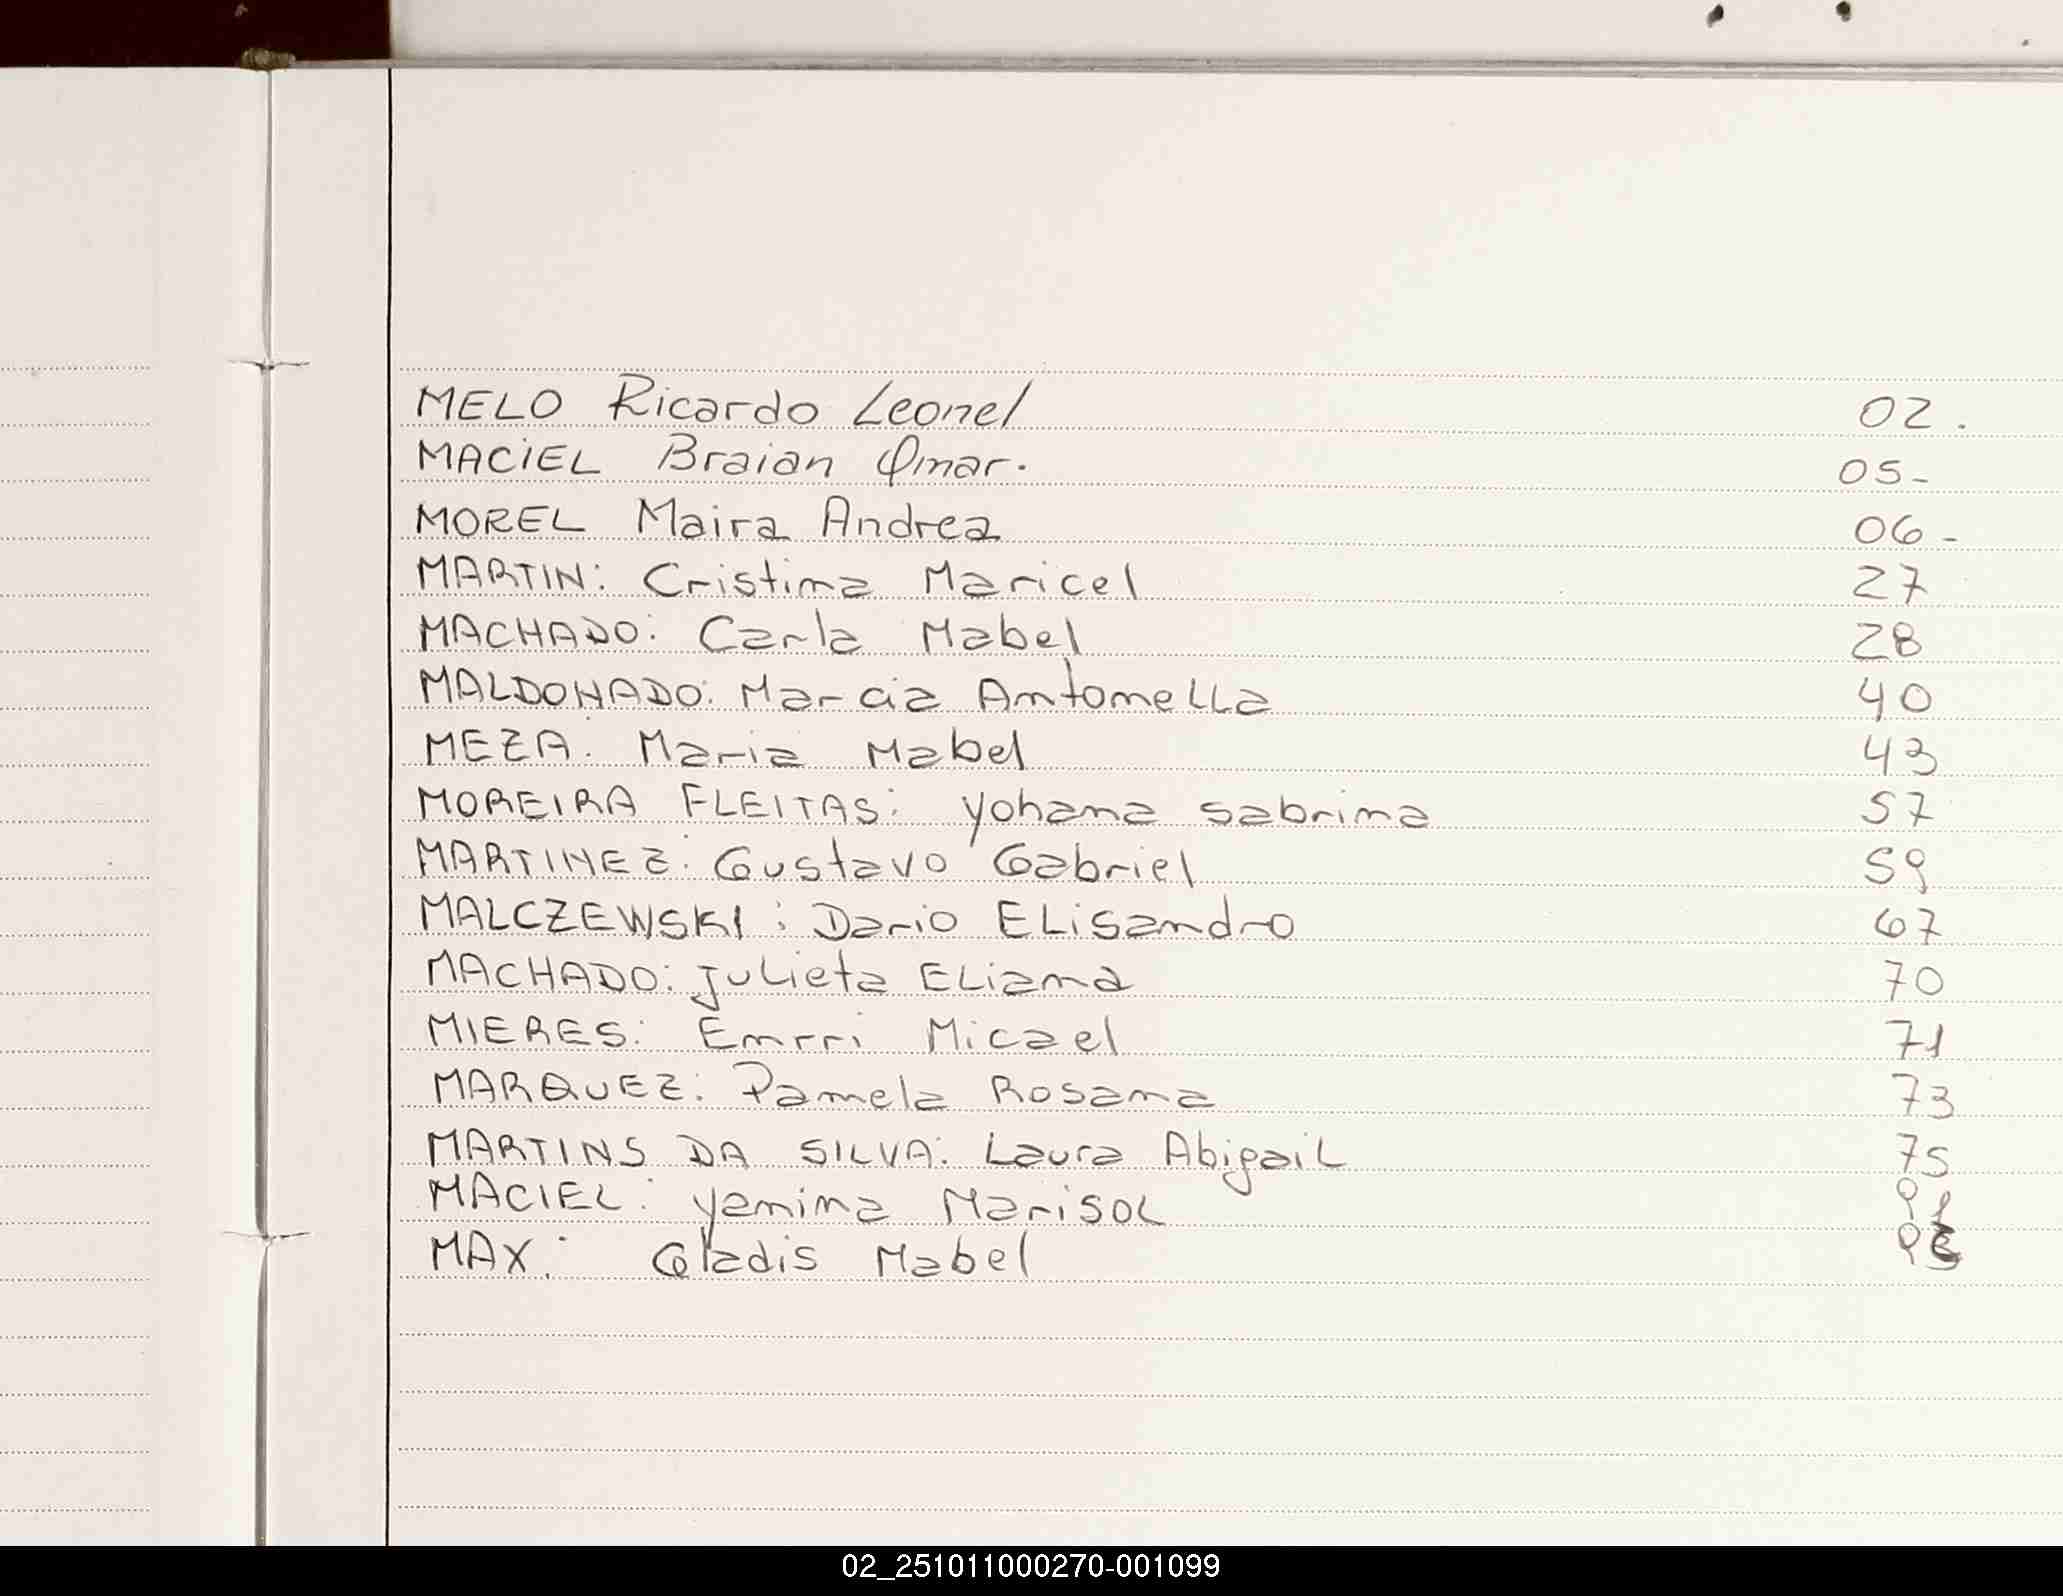 MELO Ricardo Leonel 02.
MACIEL Braian Omar. 05-
MOREL Maira Andrea 06-
MARTIN: Cristina Maricel 27
MACHADO: Carla Mabel 28
MALDONADO: Marcia Antonella 40
MEZA: Maria Mabel 43
MOREIRA FLEITAS: Yohana Sabrina 57
MARTINEZ: Gustavo Gabriel 59
MALCZEWSKI: Dario Elisandro 67
MACHADO: Julieta Eliana 70
MIERES: Emrri Micael 71
MARQUEZ: Pamela Rosana 73
MARTINS DA SILVA: Laura Abigail 75
MACIEL: Yanina Marisol 91
MAX: Gladis Mabel
02_251011000270-001099